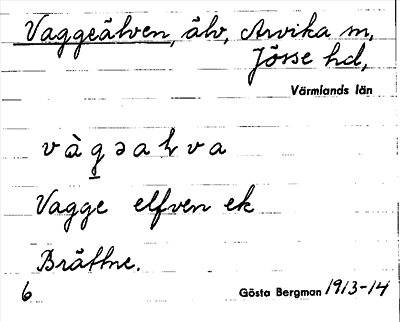 Vaggeälven, älv, Arvika m,
Jösse hd,
Värmlands län
v à g ə a ƚ v a
Vagge elfven ek
Brättne.
6 Gösta Bergman 1913-14